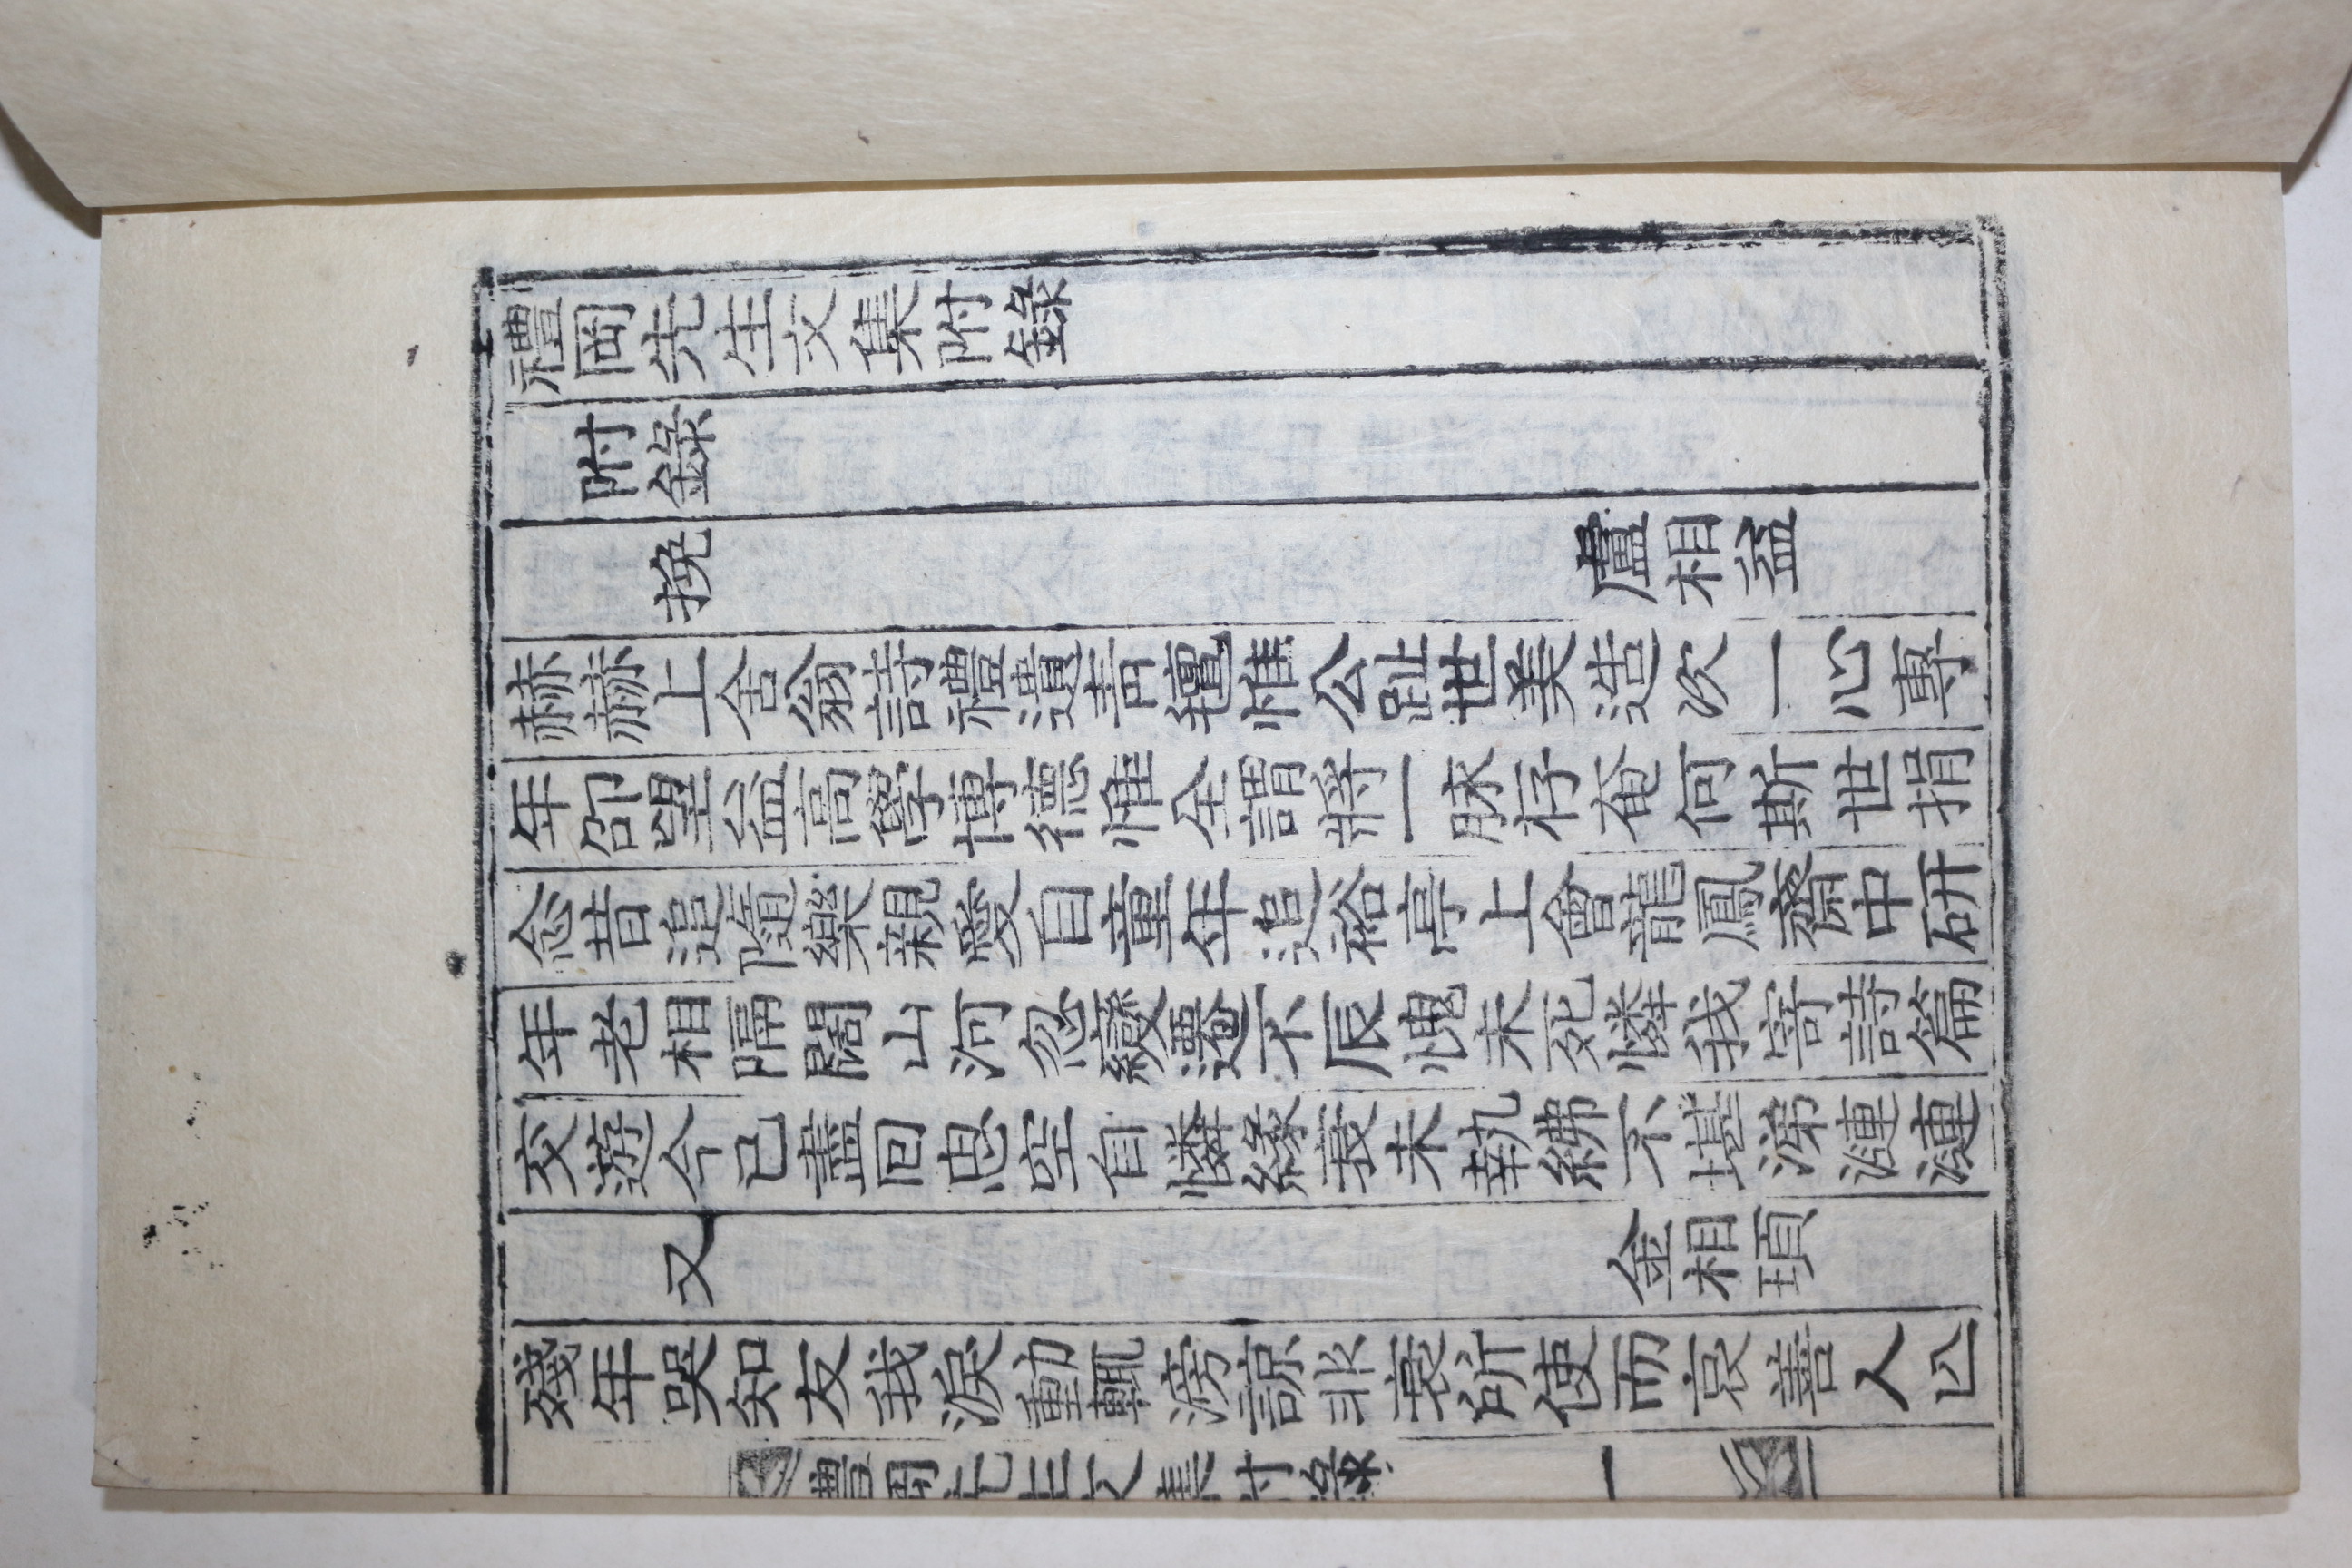 禮岡先生文集附錄
附錄
挽 盧相益
赫赫上舍翁詩禮遺靑氊惟公趾世美造次一心專
年卲望益高學博德惟全謂將一脉存奄何斯世捐
念昔追隨樂親愛自童年追裕亭上會龍鳳齋中研
年老相隔闊山河忽變遷不辰愧未死憐我寄詩篇
交遊今已盡回思空自憐緣衰未執紼不堪涕漣漣
又 金相頊
殘年哭知友我淚動輒滂諒非衰所使而哀善人亾
禮岡先生文集附錄 一